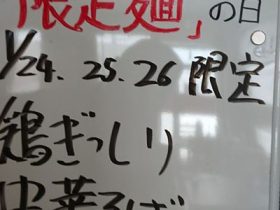 「限定麺」の日
1/24. 25. 26 限定
鶏ぎっしり
中華そば